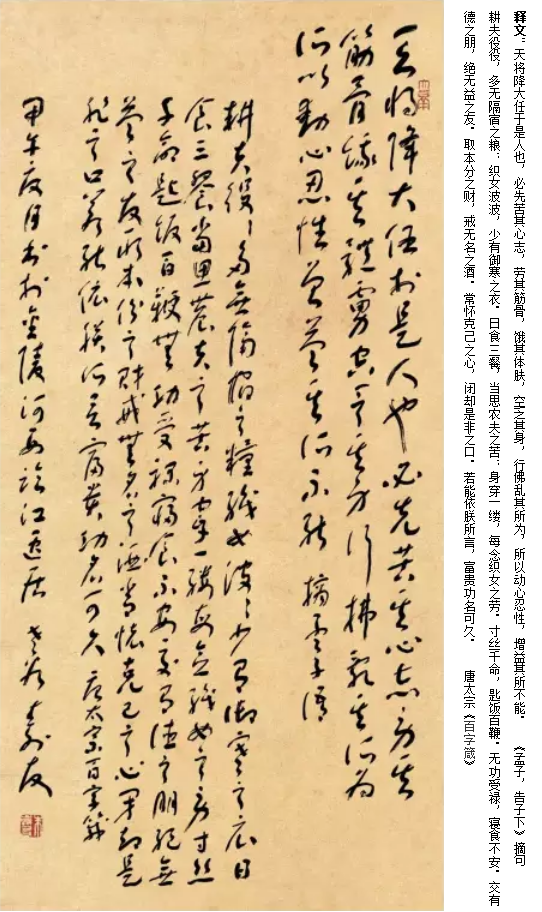 释文：天将降大任于是人也，必先苦其心志，劳其筋骨，饿其体肤，空乏其身，行佛乱其所为，所以动心忍性，增益其所不能。 《孟子，告子下》摘句
耕夫役役，多无隔宿之粮；织女波波，少有御寒之衣。日食三餐，当思农夫之苦；身穿一缕，每念织女之劳。寸丝千命，匙饭百鞭。无功受禄，寝食不安。交有
德之朋，绝无益之友。取本分之财，戒无名之酒。常怀克己之心，闭却是非之口。若能依朕所言，富贵功名可久。 唐太宗《百字箴》
天将降大任於是人也必先苦其心志劳其
筋骨饿其體膚空乏其身行拂亂其所为
所以動心忍性曾益其所不能 摘孟子語
耕夫役々多無隔宿之糧織女波々少有御寒之衣日
食三餐當思農夫之苦身穿一縷每念織女之劳寸丝
千命匙饭百鞭無功受禄寝食不安交有德之朋绝無
益之友取本份之财戒無名之酒常怀克己之心閉却是
非之口若能依朕所言富貴功名可久 唐太宗百字箴
甲午夏月书於金陵河西临江